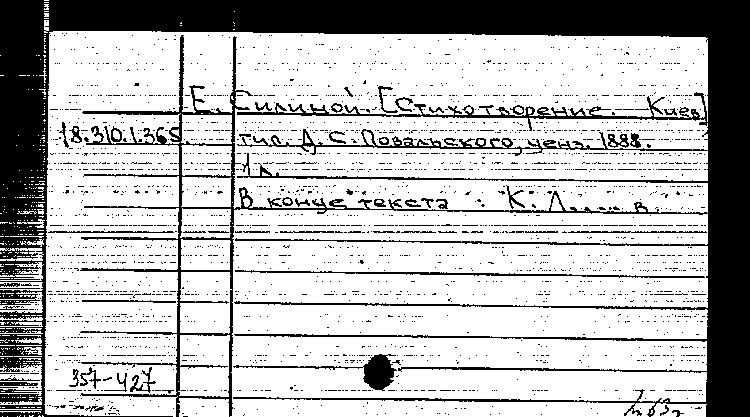 Е. Силиной. [Стихотворение. Киев]
18.310.1.365. тип. Д. С. Повальского, ценз. 1888.
1 л.
В конце текста: К.
357-427